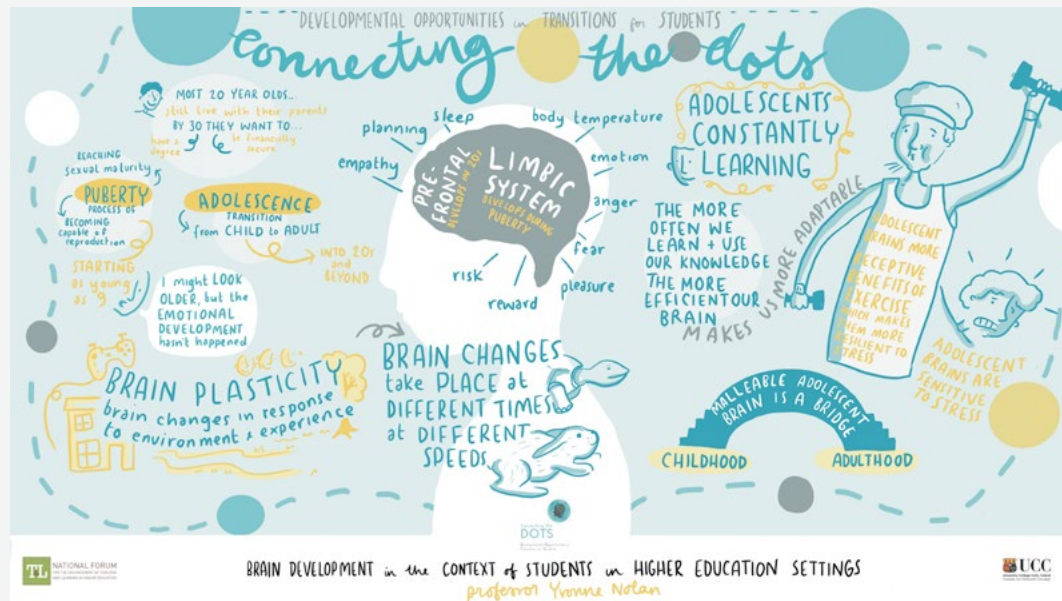 DEVELOPMENTAL OPPORTUNITIES in TRANSITIONS for STUDENTS
connecting the dots
MOST 20 YEAR OLDS...
still live with their parents
BY 30 THEY WANT TO...
have a degree
be financially secure
REACHING
sexual maturity
PUBERTY
PROCESS OF
BECOMING
capable of
reproduction
STARTING
as young
as 9
ADOLESCENCE
TRANSITION
from CHILD to ADULT
INTO 20s
and
BEYOND
I might LOOK
OLDER, but the
EMOTIONAL
DEVELOPMENT
hasn't happened
BRAIN PLASTICITY
brain changes in response
to environment & experience
empathy
planning
sleep
body temperature
emotion
anger
fear
pleasure
reward
risk
PRE-
FRONTAL
DEVELOPS IN 20s
LIMBIC
SYSTEM
DEVELOPS DURING
PUBERTY
BRAIN CHANGES
take PLACE at
DIFFERENT TIMES
at DIFFERENT
SPEEDS
ADOLESCENTS
CONSTANTLY
LEARNING
THE MORE
OFTEN WE
LEARN + USE
OUR KNOWLEDGE
THE MORE
EFFICIENT OUR
BRAIN
MAKES US MORE ADAPTABLE
ADOLESCENT
BRAINS MORE
RECEPTIVE
BENEFITS OF
EXERCISE
WHICH MAKES
THEM MORE
RESILIENT TO
STRESS
ADOLESCENT
BRAINS ARE
SENSITIVE
TO STRESS
MALLEABLE ADOLESCENT
BRAIN IS A BRIDGE
CHILDHOOD
ADULTHOOD
DOTS
TL
NATIONAL FORUM
BRAIN DEVELOPMENT in the CONTEXT of STUDENTS in HIGHER EDUCATION SETTINGS
professor Yvonne Nolan
UCC